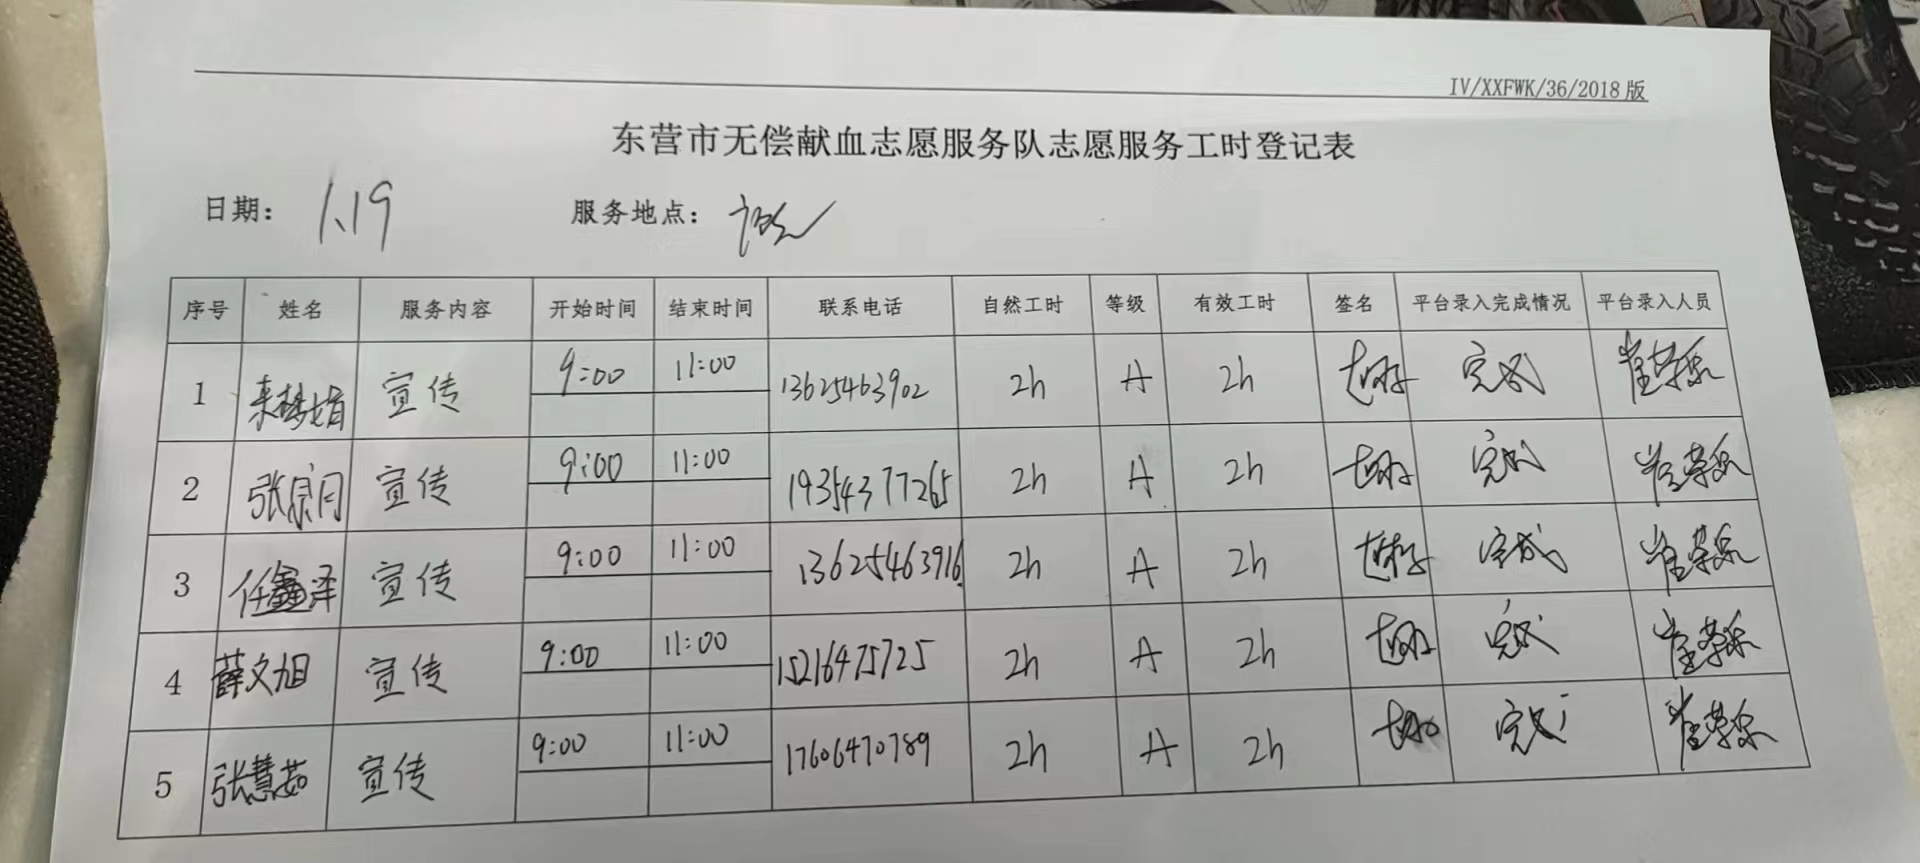 IV/XXFWK/36/2018 版
东营市无偿献血志愿服务队志愿服务工时登记表
日期： 1.19 服务地点：
序号 姓名 服务内容 开始时间 结束时间 联系电话 自然工时 等级 有效工时 签名 平台录入完成情况 平台录入人员
1 来梦娟 宣传 9:00 11:00 13625463902 2h A 2h 完成 崔荣乐
2 张宗月 宣传 9:00 11:00 19354377265 2h A 2h 完成 崔荣乐
3 任鑫泽 宣传 9:00 11:00 13625463916 2h A 2h 完成 崔荣乐
4 薛文旭 宣传 9:00 11:00 15216475725 2h A 2h 完成 崔荣乐
5 张慧茹 宣传 9:00 11:00 17606470789 2h A 2h 完成 崔荣乐